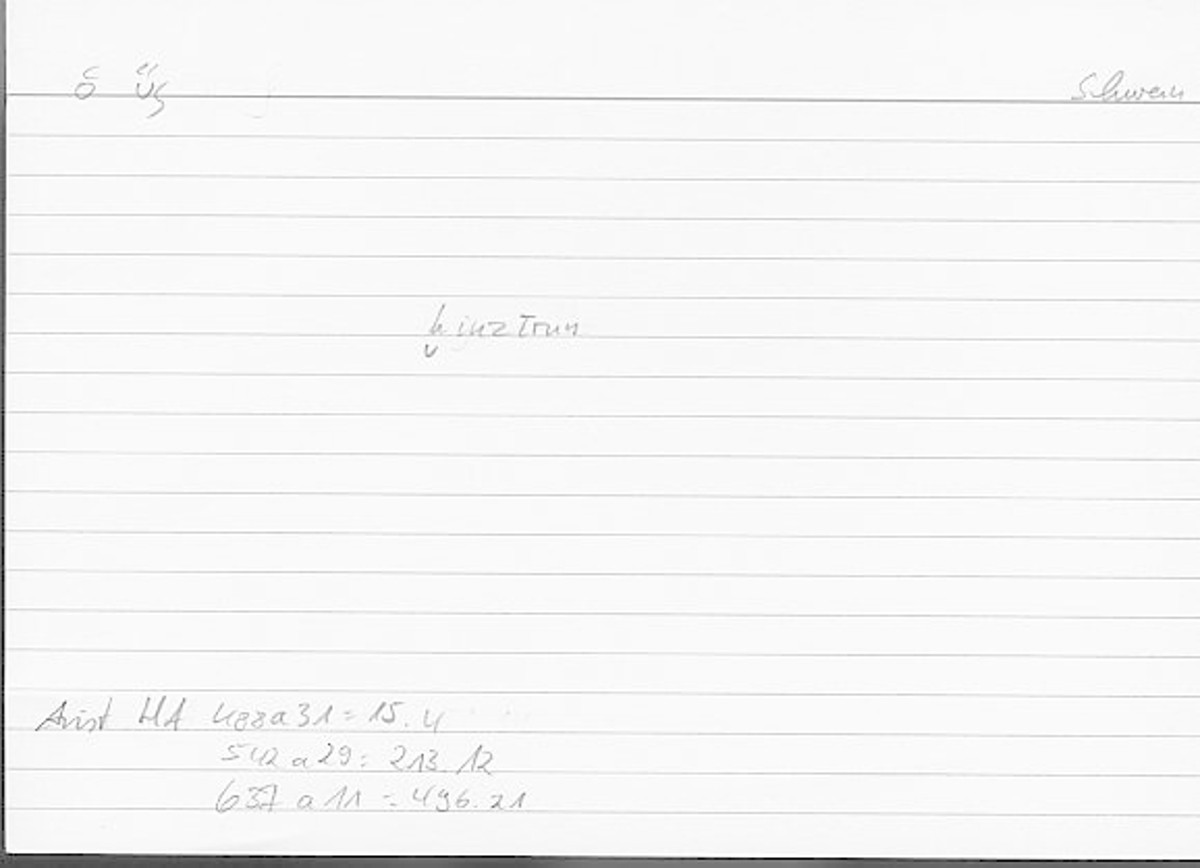 ὁ ὗς Schwein
ḫinzīrun
Arist HA 488a31 = 15.4
542a29 = 213.12
637a11 = 496.21